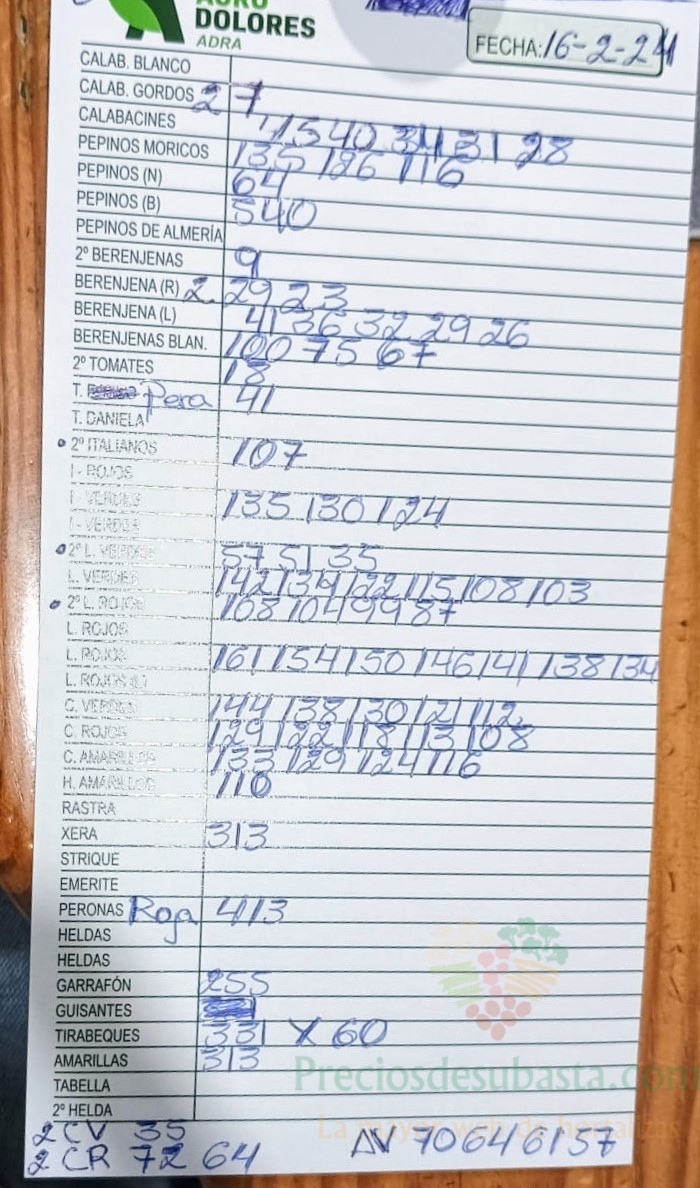 AGRO
DOLORES
ADRA
FECHA: 16-2-24
CALAB. BLANCO
CALAB. GORDOS 2 7
CALABACINES 45 40 34 31 28
PEPINOS MORICOS 135 126 116
PEPINOS (N) 64
PEPINOS (B) 540
PEPINOS DE ALMERÍA
2º BERENJENAS 9
BERENJENA (R) 2 29 23
BERENJENA (L) 41 36 32 29 26
BERENJENAS BLAN. 100 75 67
2º TOMATES 18
T. Pera 41
T. DANIELA
2º ITALIANOS 107
I - ROJOS
I - VERDES 135 130 124
I - VERDES
2º L. VERDES 57 51 35
L. VERDES 142 134 122 115 108 103
2º L. ROJOS 108 104 99 87
L. ROJOS
L. ROJOS 161 154 150 146 141 138 134
L. ROJOS
C. VERDES 144 138 130 121 112
C. ROJOS 129 122 118 113 108
C. AMARILLOS 133 129 124 116
H. AMARILLOS 110
RASTRA
XERA 313
STRIQUE
EMERITE
PERONAS Roja 413
HELDAS
HELDAS
GARRAFÓN 255
GUISANTES
TIRABEQUES 331 X 60
AMARILLAS 313
TABELLA
2º HELDA
Preciosdesubasta.com
La mayor web de hortalizas
2 CV 35
2 CR 72 64 AV 70 64 61 57